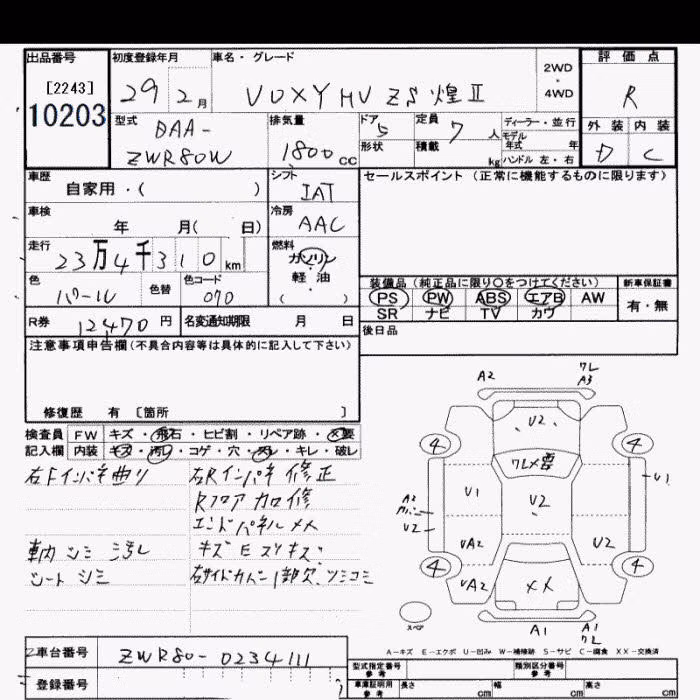 出品番号
[2243]
10203
初度登録年月
29 2月
車名・グレード
VOXY HV ZS 煌 II
2WD
・
4WD
評価点
R
外装 内装
D C
型式
DAA-
ZWR80W
排気量
1800 cc
ドア
5
形状
定員
7 人
積載
kg
ディーラー・並行
モデル
年式 年
ハンドル 左・右
車歴
自家用・( )
シフト
IAT
セールスポイント(正常に機能するものに限ります)
車検
年 月( 日)
冷房
AAC
走行
23万4千310km
燃料
ガソリン
軽・油
( )
色
パール
色替
色コード
070
装備品(純正品に限り○をつけてください)
PS PW ABS エアB AW
SR ナビ TV カワ
新車保証書
有・無
R券
12470円
名変通知期限 月 日
後日品
注意事項申告欄(不具合内容等は具体的に記入して下さい)
修復歴 有 [箇所 ]
検査員
記入欄
FW キズ・飛石・ヒビ割・リペア跡・×要
内装 キズ・汚レ・コゲ・穴・スレ・キレ・破レ
右Fインパネ曲り
右Rインパネ修正
Rフロア カロ修
エンドパネル メメ
車内 シミ 汚レ
キズ E スリキズ
シート シミ
右サイドカバー1部欠、ツミコミ
A2
ワレ
A3
U2
4
4
ワレ×要
U1
U2
U1
A2
カバー
U2
UA2
U2
4
4
UA2
××
スペア
A1
A1
ワレ
A-キズ E-エクボ U-凹み W-補修跡 S-サビ C-腐食 XX-交換済
車台番号
ZWR80-0234111
登録番号
型式指定番号
参考
類別区分番号
参考
車庫証明用
参考
長さ cm
幅 cm
高さ cm